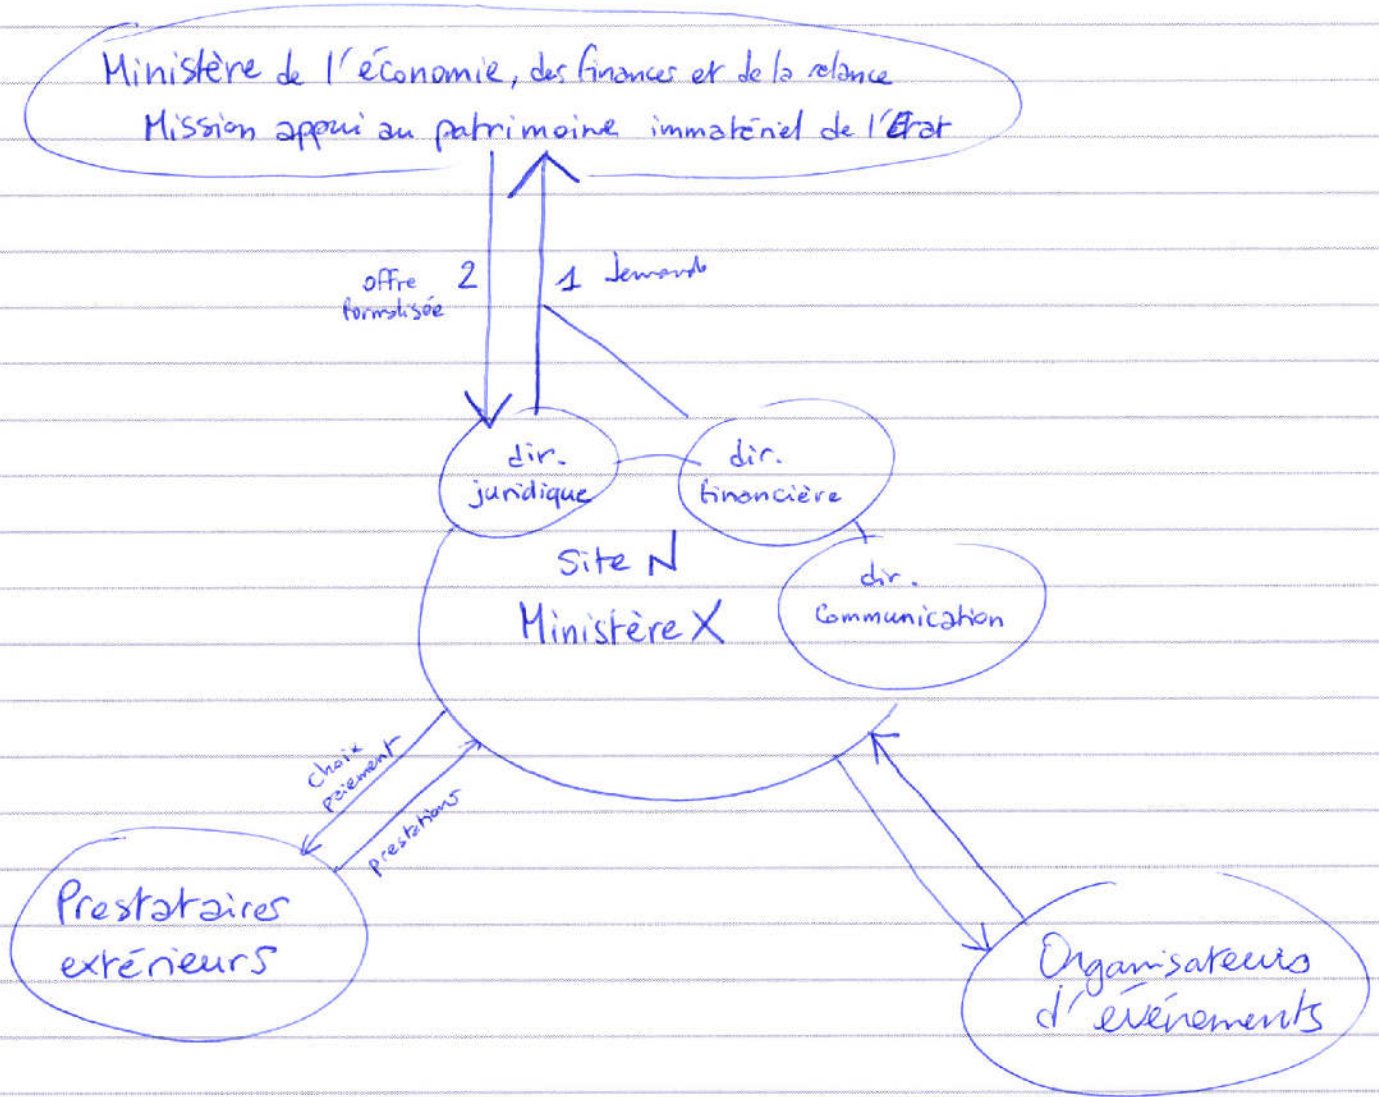 Ministère de l'économie, des finances et de la relance
Mission appui au patrimoine immatériel de l'Etat
offre
formalisée
2
1 demande
dir.
juridique
dir.
financière
Site N
Ministère X
dir.
Communication
choix
paiement
prestations
Prestataires
extérieurs
Organisateurs
d'événements